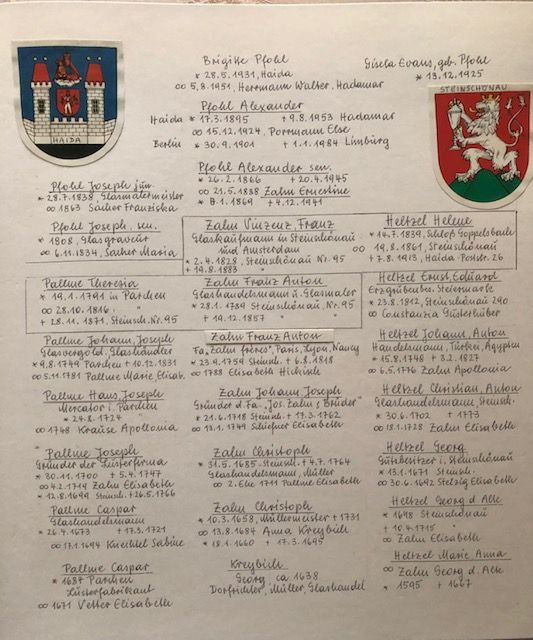 Brigitte Pfohl
* 28.5.1931, Haida
∞ 5.8.1951, Herrmann Walter, Hadamar
Gisela Evans, geb. Pfohl
* 13.12.1925
HAIDA
STEINSCHÖNAU
Pfohl Alexander
Haida * 17.3.1895 + 9.8.1953 Hadamar
∞ 15.12.1924, Porrmann Else
Berlin * 30.9.1901 + 1.1.1984 Limburg
Pfohl Alexander sen.
* 26.2.1866 + 20.4.1945
∞ 21.5.1888 Zahn Ernestine
* 8.1.1869 + 4.12.1941
Pfohl Joseph jun.
* 28.7.1838, Glasmalermeister
∞ 1863 Sacher Franziska
Pfohl Joseph, sen.
* 1808, Glasgraveur
∞ 6.11.1834, Sacher Maria
Zahn Vinzenz, Franz
Glaskaufmann in Steinschönau
und Amsterdam
* 2.4.1828, Steinschönau Nr. 95
+ 19.8.1883
Heltzel Helene
* 14.7.1839, Schloß Göppelsbach
∞ 19.8.1861, Steinschönau
+ 7.8.1913, Haida-Poststr. 26
Pallme Theresia
* 19.1.1791 in Parchen
∞ 28.10.1816
+ 28.11.1871, Steinsch. Nr. 95
Zahn Franz Anton
Glashandelsmann u. Glasmaler
* 28.1.1789 Steinschönau Nr. 95
+ 19.12.1857
Heltzel Ernst, Eduard
Erzgrubenbes. Steiermark
* 23.8.1812, Steinschönau 290
∞ Constanzia
Pallme Johann, Joseph
Glasvergold., Glashändler
* 9.8.1749 Parchen + 10.12.1831
∞ 5.11.1781 Pallme Marie Elisab.
Zahn Franz Anton
Fa. "Zahn frères", Paris, Lyon, Nancy
* 23.4.1759 Steinsch. + 6.8.1818
∞ 1788 Elisabeth Hickisch
Heltzel Johann, Anton
Handelsmann, Türkei, Ägypten
* 15.8.1748 + 3.2.1827
∞ 6.5.1776 Zahn Apollonia
Pallme Hans, Joseph
Mercator i. Parchen
* 24.8.1724
∞ 1748 Krause Apollonia
Zahn Johann, Joseph
Gründer d. Fa. "Jos. Zahn & Brüder"
* 21.6.1718 Steinsch. + 17.3.1762
∞ 13.1.1749 Schiefner Elisabeth
Heltzel Christian, Anton
Glashandelsmann, Steinsch.
* 30.6.1702 + 1773
∞ 18.1.1728 Zahn Elisabeth
Pallme Joseph
Gründer der Lüsterfirma
* 30.11.1700 + 5.4.1747
∞ 4.2.1719 Zahn Elisabeth
* 12.8.1699 Steinsch. + 26.5.1766
Zahn Christoph
* 31.5.1685 Steinsch. + 4.7.1764
Glashandelsmann, Müller
∞ 2. Ehe 1711 Pallme Elisabeth
Heltzel Georg
Gutsbesitzer i. Steinschönau
* 13.1.1671 Steinsch.
∞ 30.6.1692 Stelzig Elisabeth
Pallme Caspar
Glashandelsmann
* 26.4.1673 + 17.3.1721
∞ 17.1.1694 Knechtel Sabine
Zahn Christoph
* 10.3.1658, Müllermeister + 1731
∞ 13.8.1684 Anna Kreybich
* 18.1.1660 + 17.3.1695
Heltzel Georg d. Alte
* 1698 Steinschönau
+ 10.4.1715 "
∞ Zahn Elisabeth
Pallme Caspar
* 1687 Parchen
Lüsterfabrikant
∞ 1671 Vetter Elisabeth
Kreybich
Georg ca 1638
Dorfrichter, Müller, Glashandel
Heltzel Marie Anna
∞ Zahn Georg d. Alte
* 1595 + 1667